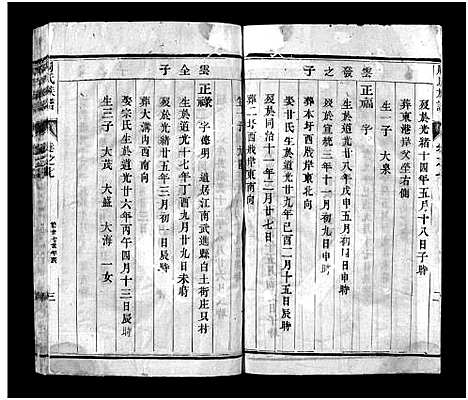 歿於光緒十四年五月十八日子時
葬東港岸文坐右側
生一子 大泉
雲發之子 正福 字
生於道光廿八年戊申五月初九日申時
歿於宣統三年十一月初九日申時
葬本圩西岸東北向
娶甘氏生於道光廿九年己酉二月十五日辰時
歿於同治十一年三月廿七日
葬二圩西岸東南向
雲全子 正祿 字 遷居江南武進縣白土街庄只村
生於道光十七年丁酉九月廿九日未時
歿於光緒廿五年三月初一日辰時
葬大溝內西南向
娶宗氏生於道光廿六年丙午四月十三日辰時
生三子 大茂 大盛 大海 一女
周氏族譜
卷之七
三